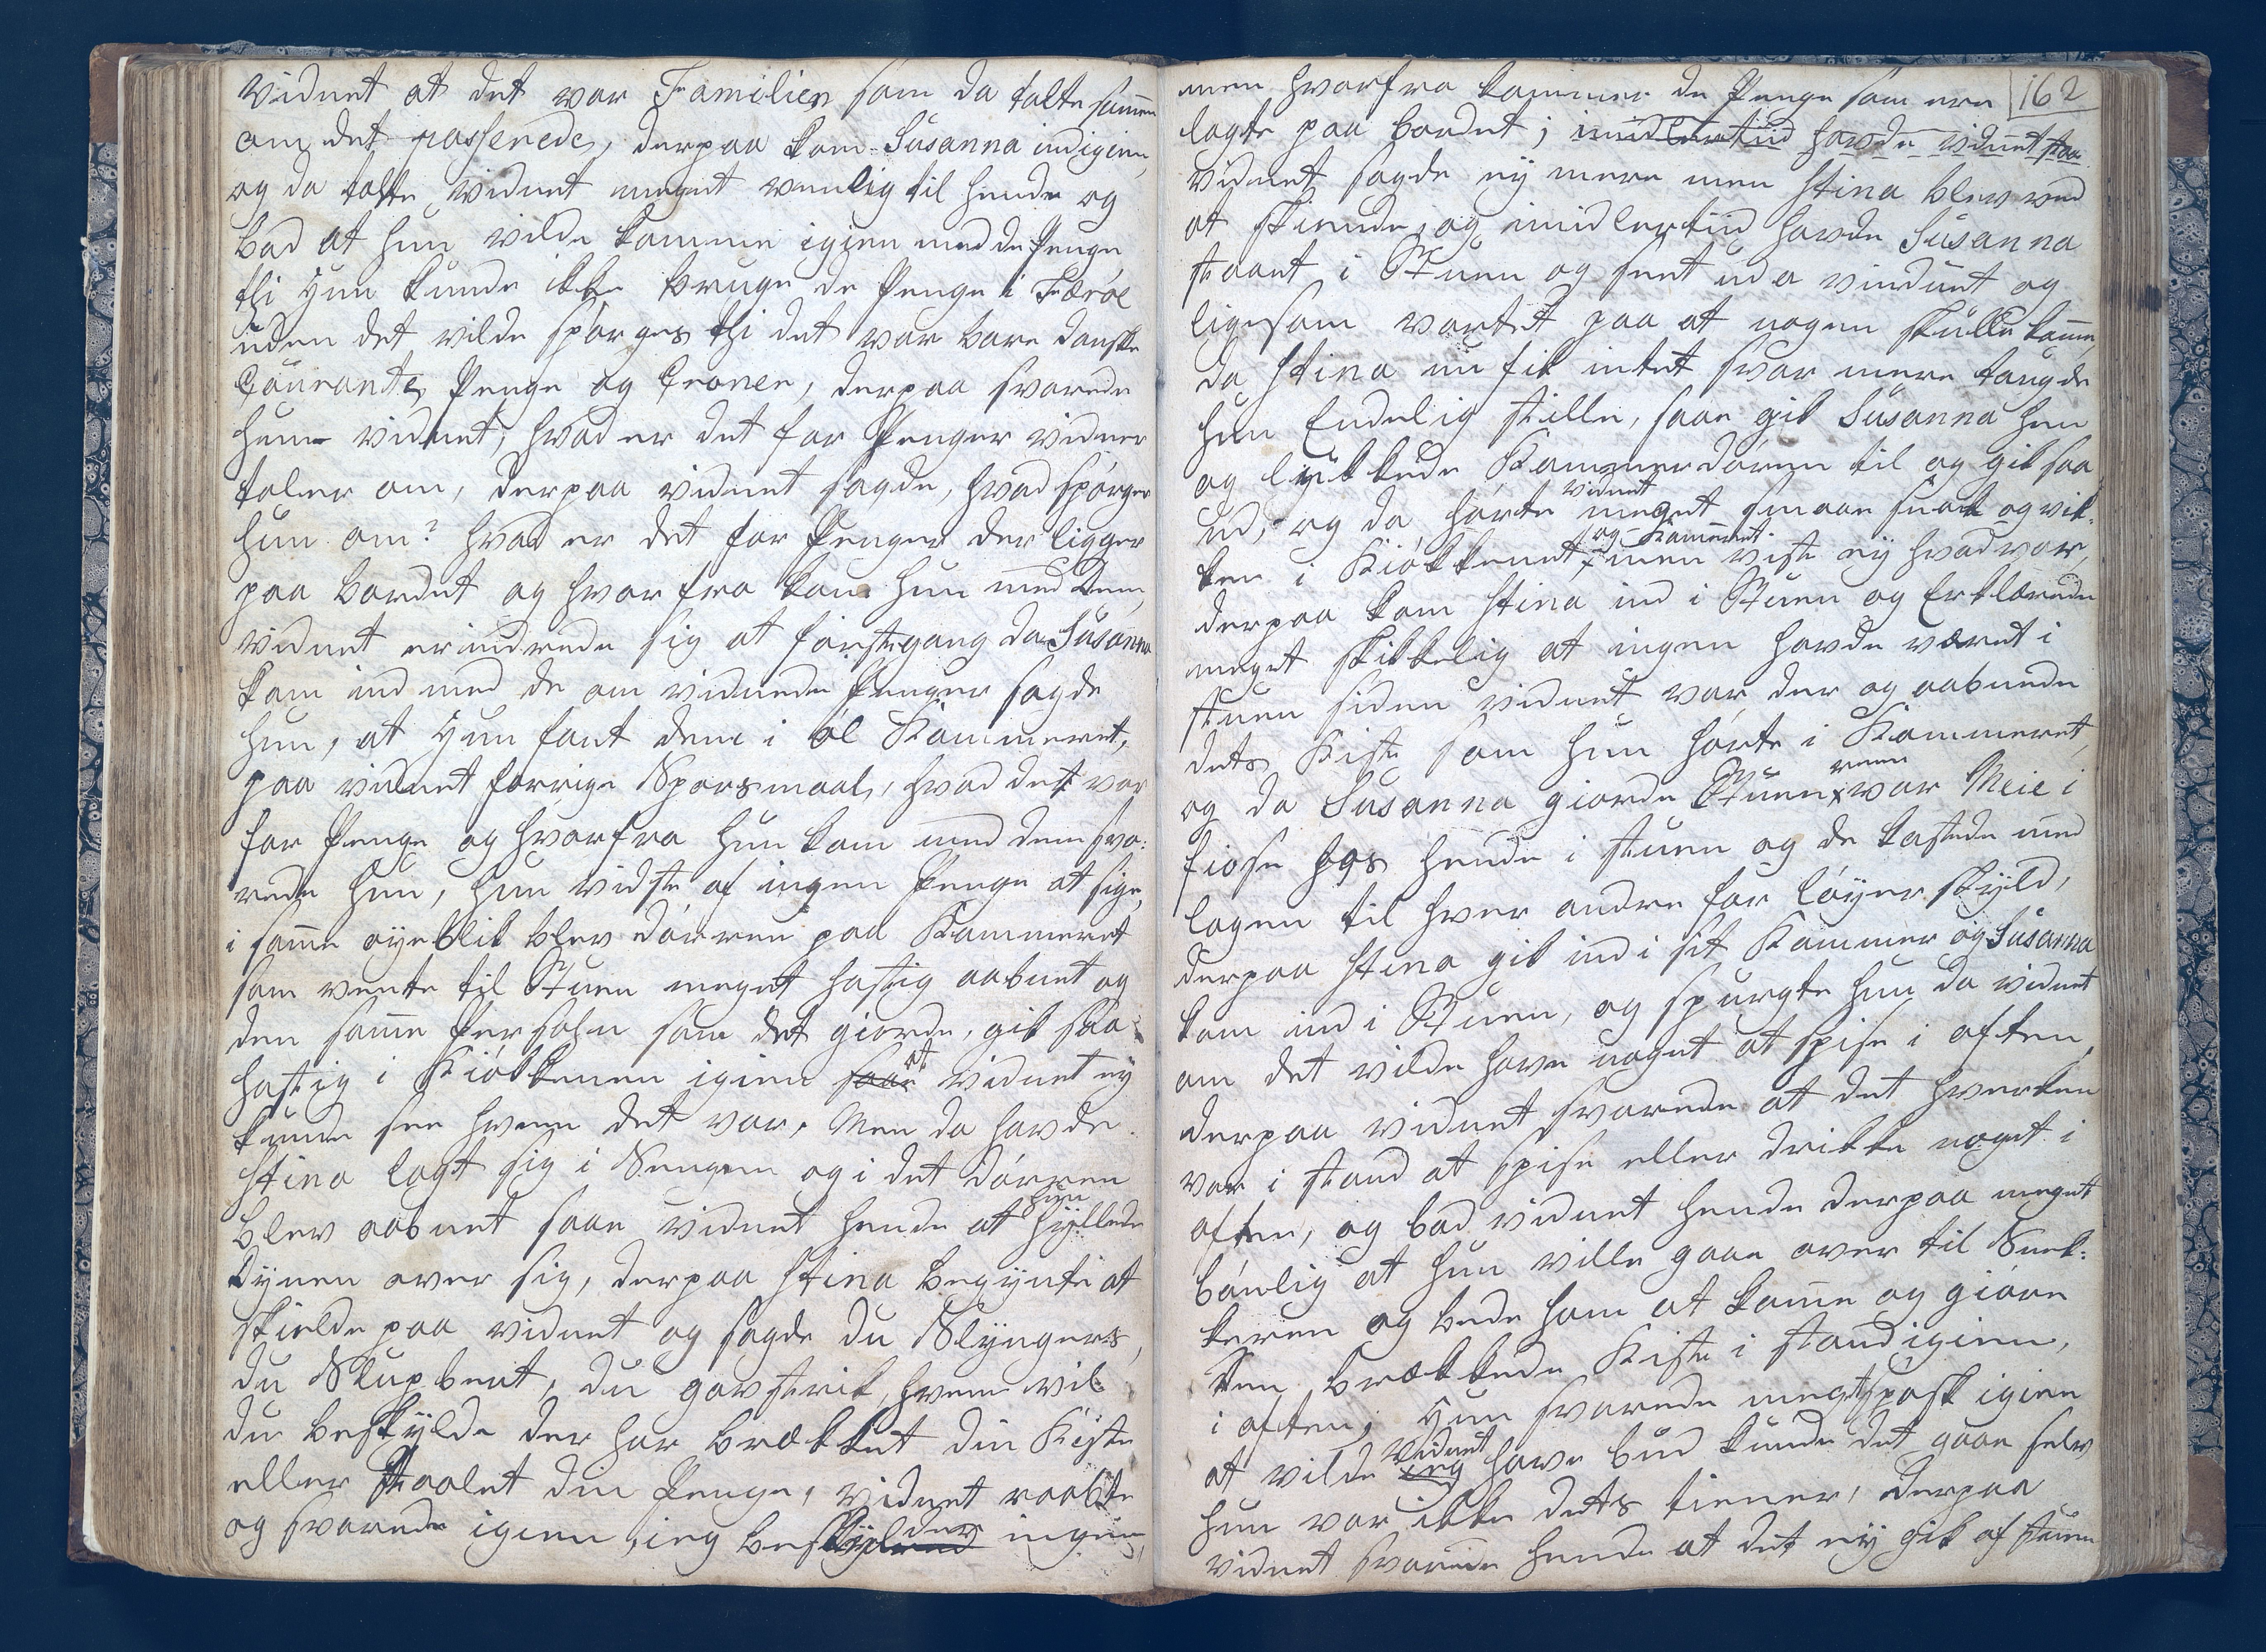 vidnet at det var Familien som da talte samen
om det passerede, derpaa kom Susanna ind igien,
og da talte vidnet meget venlig til hende og
bad at hun vilde komme igien med de Penge
thi Hun kunde ikke bruge de Penge i Færöe
uden det vilde spørges thi det var bare danske
Courante Penge og Croner, derpaa svarede
hun vidnet, hvad er det for Penger vidner
taler om, derpaa vidnet sagde, hvad spørger
hun om? hvad er det for Penger der ligger
paa bordet og hvorfra kom hun med dem,
vidnet erindrede sig at førstegang da Susanna
kom ind med de om vidnede Penger sagde
hun, at Hun fant dem i øl Kammeret,
paa vidnet forrige Spørsmaal, hvad det var
for Penge og hvorfra hun kom med dem sva:
rede hun, hun vidste af ingen Penge at sige,
i same øyeblik blev dørren paa Kammeret
som vente til Stuen meget hastig aabnet og
den same Persohn som det giorde, gik saa
hastig i Kiøkkenen igien saae at vidnet ey
kunde see hvem det var, Men da havde
Stina lagt sig i Sengen og i det dørren
blev aabnet saae vidnet hende at hun hyllede
Dynen over sig, derpaa Stina begynte at
skielde paa vidnet og sagde du Slyngers,
du Slupbent, du garstrik, hvem vil
du beskylde der har brækket din Kiste
eller Staalet din Penge, vidnet raabte
og svarede igien, ieg beskylder ingen,
162
men hvorfra kommer de Penge som ere
lagte paa bordet; imidlertiid havde vidnet staa
vidnet sagde ey mere men Stina blev ved
at skiende, og imidlertiid havde Susanna
staaet i Stuen og seet ud a vinduet og
ligesom vartet paa at nogen skulle kome,
da Stina nu fik intet svar mere taugde
hun Endelig stille, saae gik Susanna hen
og lykkede Kammerdøren til og gik saa
ud, og da hørte vidnet meget smaae snak og vik:
ken i Kiøkkenet, og Kameret men viste ey hvad var,
derpaa kom Stina ind i Stuen og Erklærede
meget skikkelig at ingen havde været i
stuen siden vidnet var der og aabnede
dets Kiste som hun hørte i Kammeret,
og da Susanna giorde Stuen reen var Meie i
fiose hos hende i stuen og de kastede med
lagen til hver andre for løyer skyld,
derpaa Stina gik ind i sit Kammer og Susanna
kom ind i Stuen, og spurgte hun da vidnet
om det vilde have noget at spise i aften,
derpaa vidnet svarede at det hverken
var i stand at spise eller drikke noget i
aften, og bad vidnet hende derpaa meget
bønlig at hun ville gaae over til Snek:
keren og bede ham at kome og giøre
den brækkede Kiste i stand igien,
i aften, Hun svarede meget spask igien
at vilde ieg vidnet have bud kunde det gaae selv
hun var ikke dets tiener, derpaa
vidnet svarede hende at det ey gik af stuen